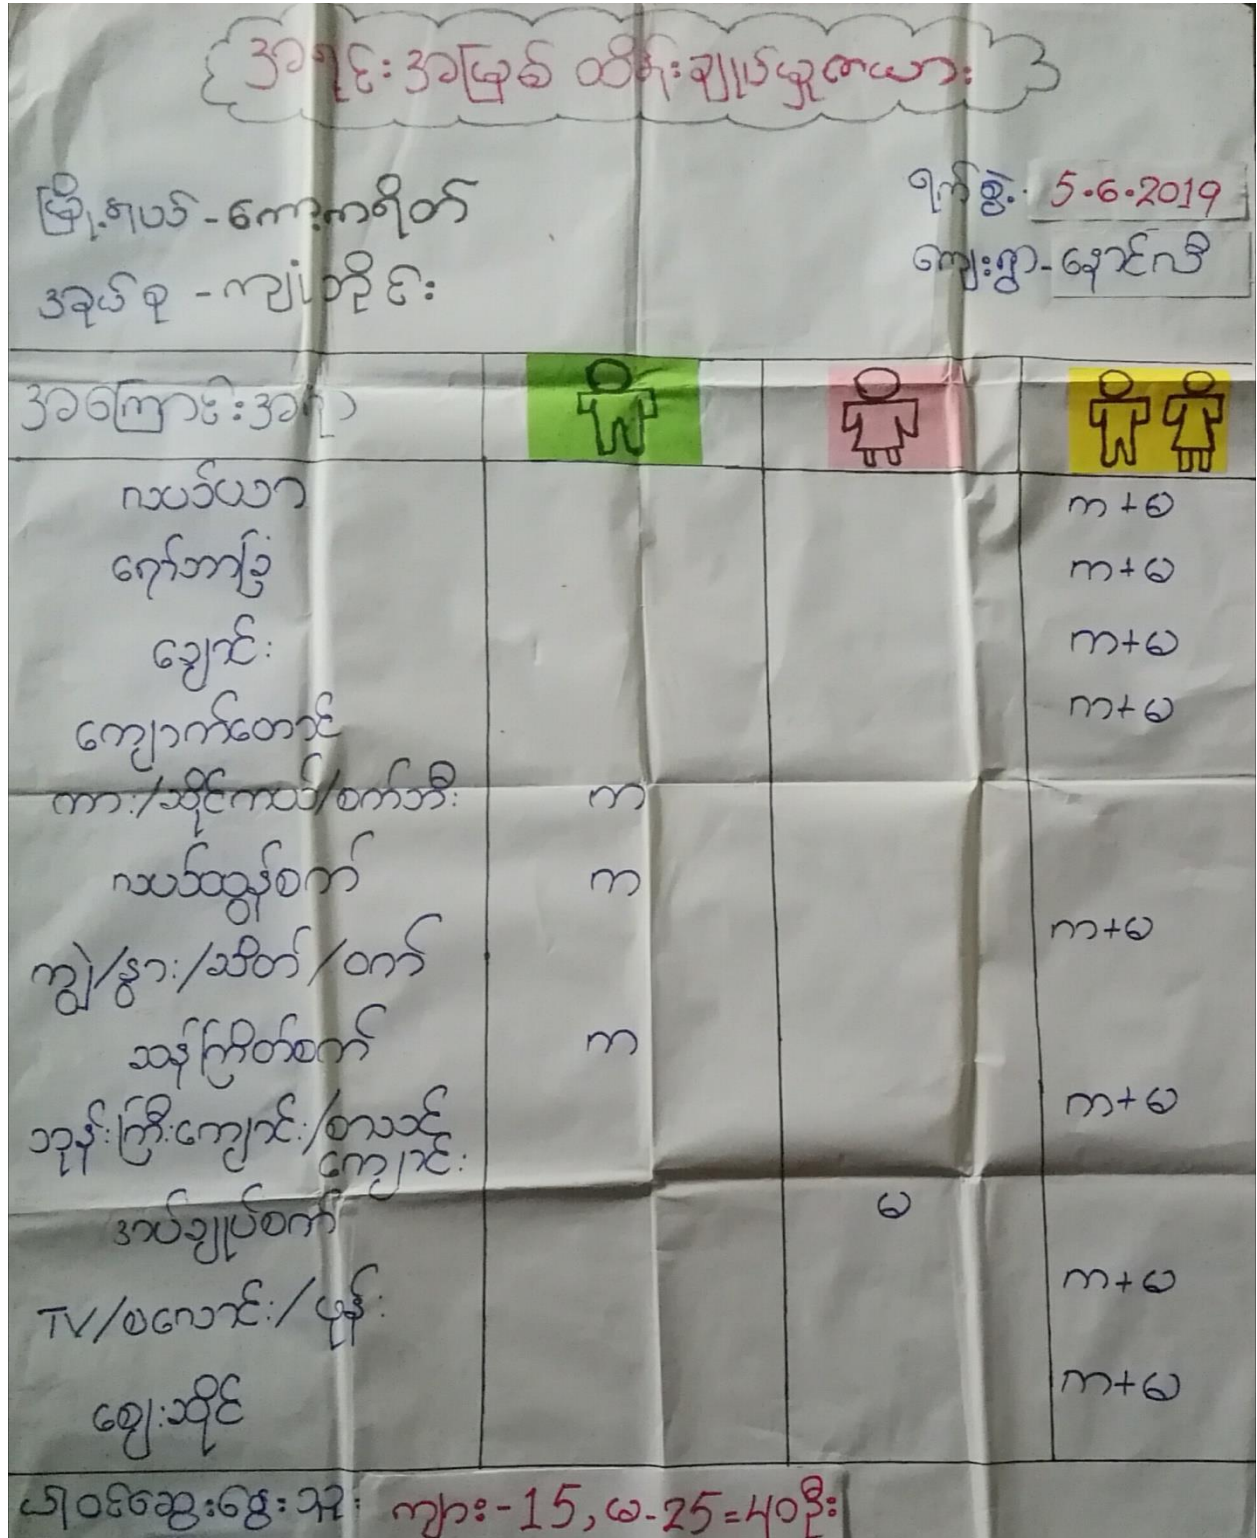 အရင်းအမြစ် ထိန်းချုပ်မှုဇယား
မြို့နယ် - ကော့ကရိတ်
ရက်စွဲ. 5.6.2019
အုပ်စု - ကျုံဘိုင်း
ကျေးရွာ - နောင်လီ
အကြောင်းအရာ
လယ်ယာ က+မ
ရော်ဘာခြံ က+မ
ချောင်း က+မ
ကျောက်တောင် က+မ
ကား/ဆိုင်ကယ်/စက်ဘီး က
လယ်ထွန်စက် က
ကျွဲ/နွား/ဆိတ်/ဝက် က+မ
ဆန်ကြိတ်စက် က
ဘုန်းကြီးကျောင်း/စာသင်
ကျောင်း က+မ
အပ်ချုပ်စက် မ
TV/စလောင်း/ဖုန်း က+မ
ဈေးဆိုင် က+မ
ပါဝင်ဆွေးနွေးသူ ကျား-15, မ-25=40ဦး